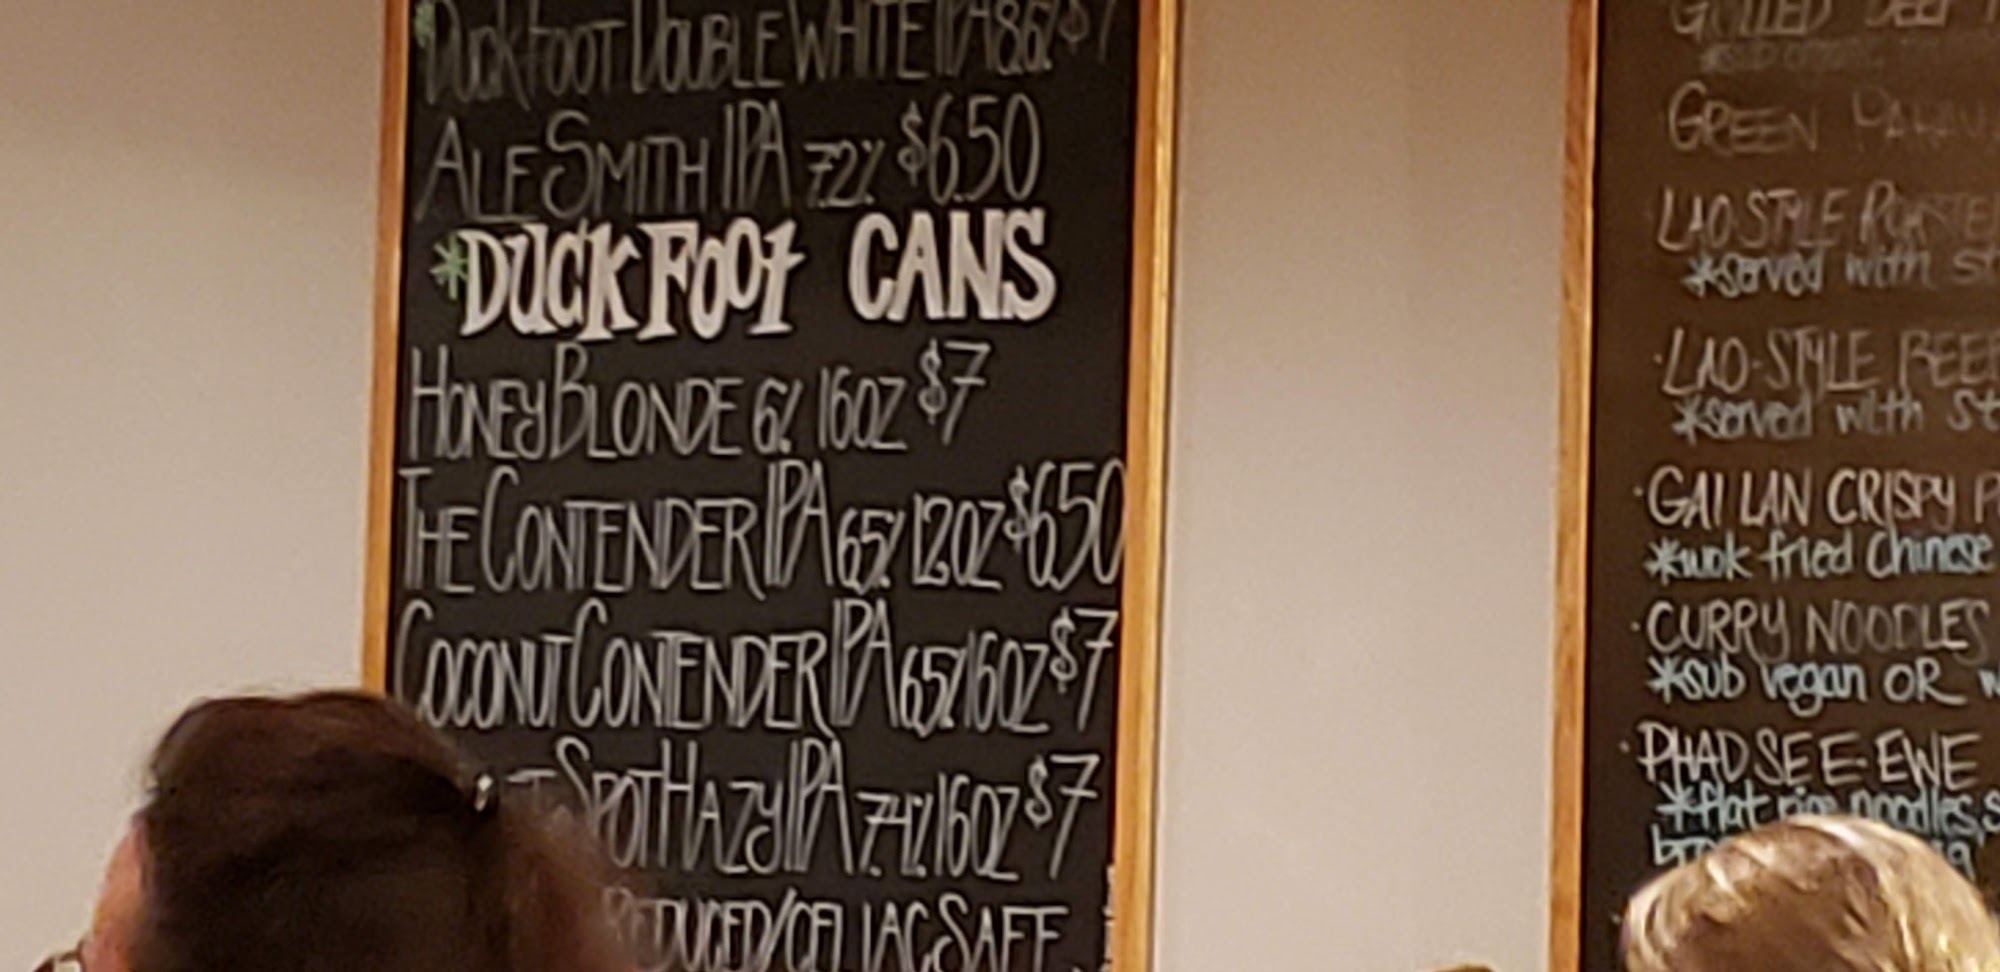 *DUCKFOOT DOUBLE WHITE IPA 8.6% $7
ALESMITH IPA 7.2% $6.50
*DUCKFOOT CANS
HONEY BLONDE 6% 16OZ $7
THE CONTENDER IPA 6.5% 12OZ $6.50
COCONUT CONTENDER IPA 6.5% 16OZ $7
SPOT HAZY IPA 7.4% 16OZ $7
REDUCED/CELIAC SAFE
GRILLED BEEF
GREEN
LAO STYLE
*served with
·LAO-STYLE BEEF
*served with
·GAI LAN CRISPY
*wok fried Chinese
·CURRY NOODLES
*sub vegan OR
·PHAD SEE-EWE
*flat rice noodles,